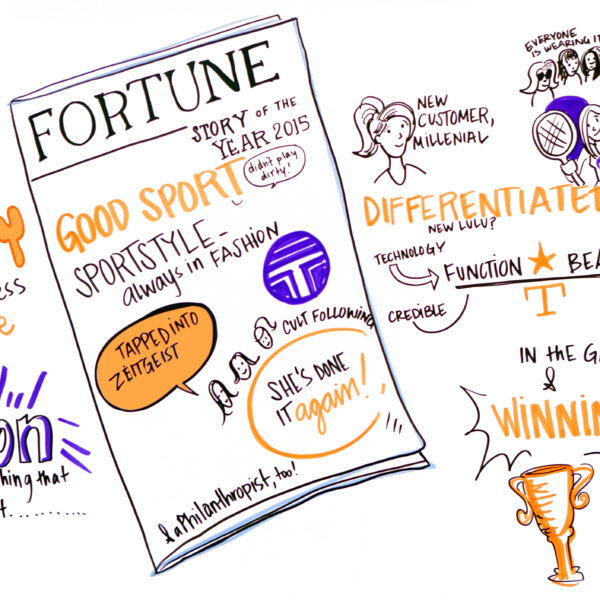 FORTUNE
STORY OF THE
YEAR 2015
GOOD SPORT
didn't play
dirty!
SPORTSTYLE -
always in FASHION
TAPPED INTO
ZEITGEIST
CULT FOLLOWING
SHE'S DONE
IT again!
& a Philanthropist, too!
Y
ess
e
on
hing that
t..........
EVERYONE
IS WEARING IT
NEW
CUSTOMER,
MILLENIAL
DIFFERENTIATE
NEW LULU?
TECHNOLOGY
FUNCTION ★ BEA
CREDIBLE
T
IN the GA
&
WINNIN